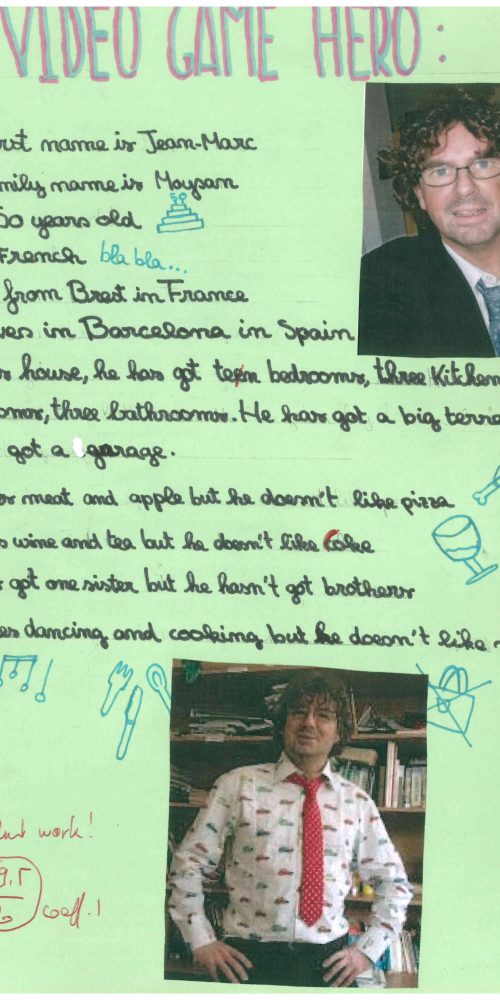 VIDEO GAME HERO:
rst name is Jean-Marc
mily name is Moysan
50 years old
French bla bla...
from Brest in France
ves in Barcelona in Spain
s house, he has got teen bedrooms, three Kitchen
oms, three bathrooms. He has got a big terra
got a garage.
s meat and apple but he doesn't like pizza
s wine and tea but he doesn't like Coke
s got one sister but he hasn't got brothers
es dancing and cooking but he doesn't like
work!
coeff. 1